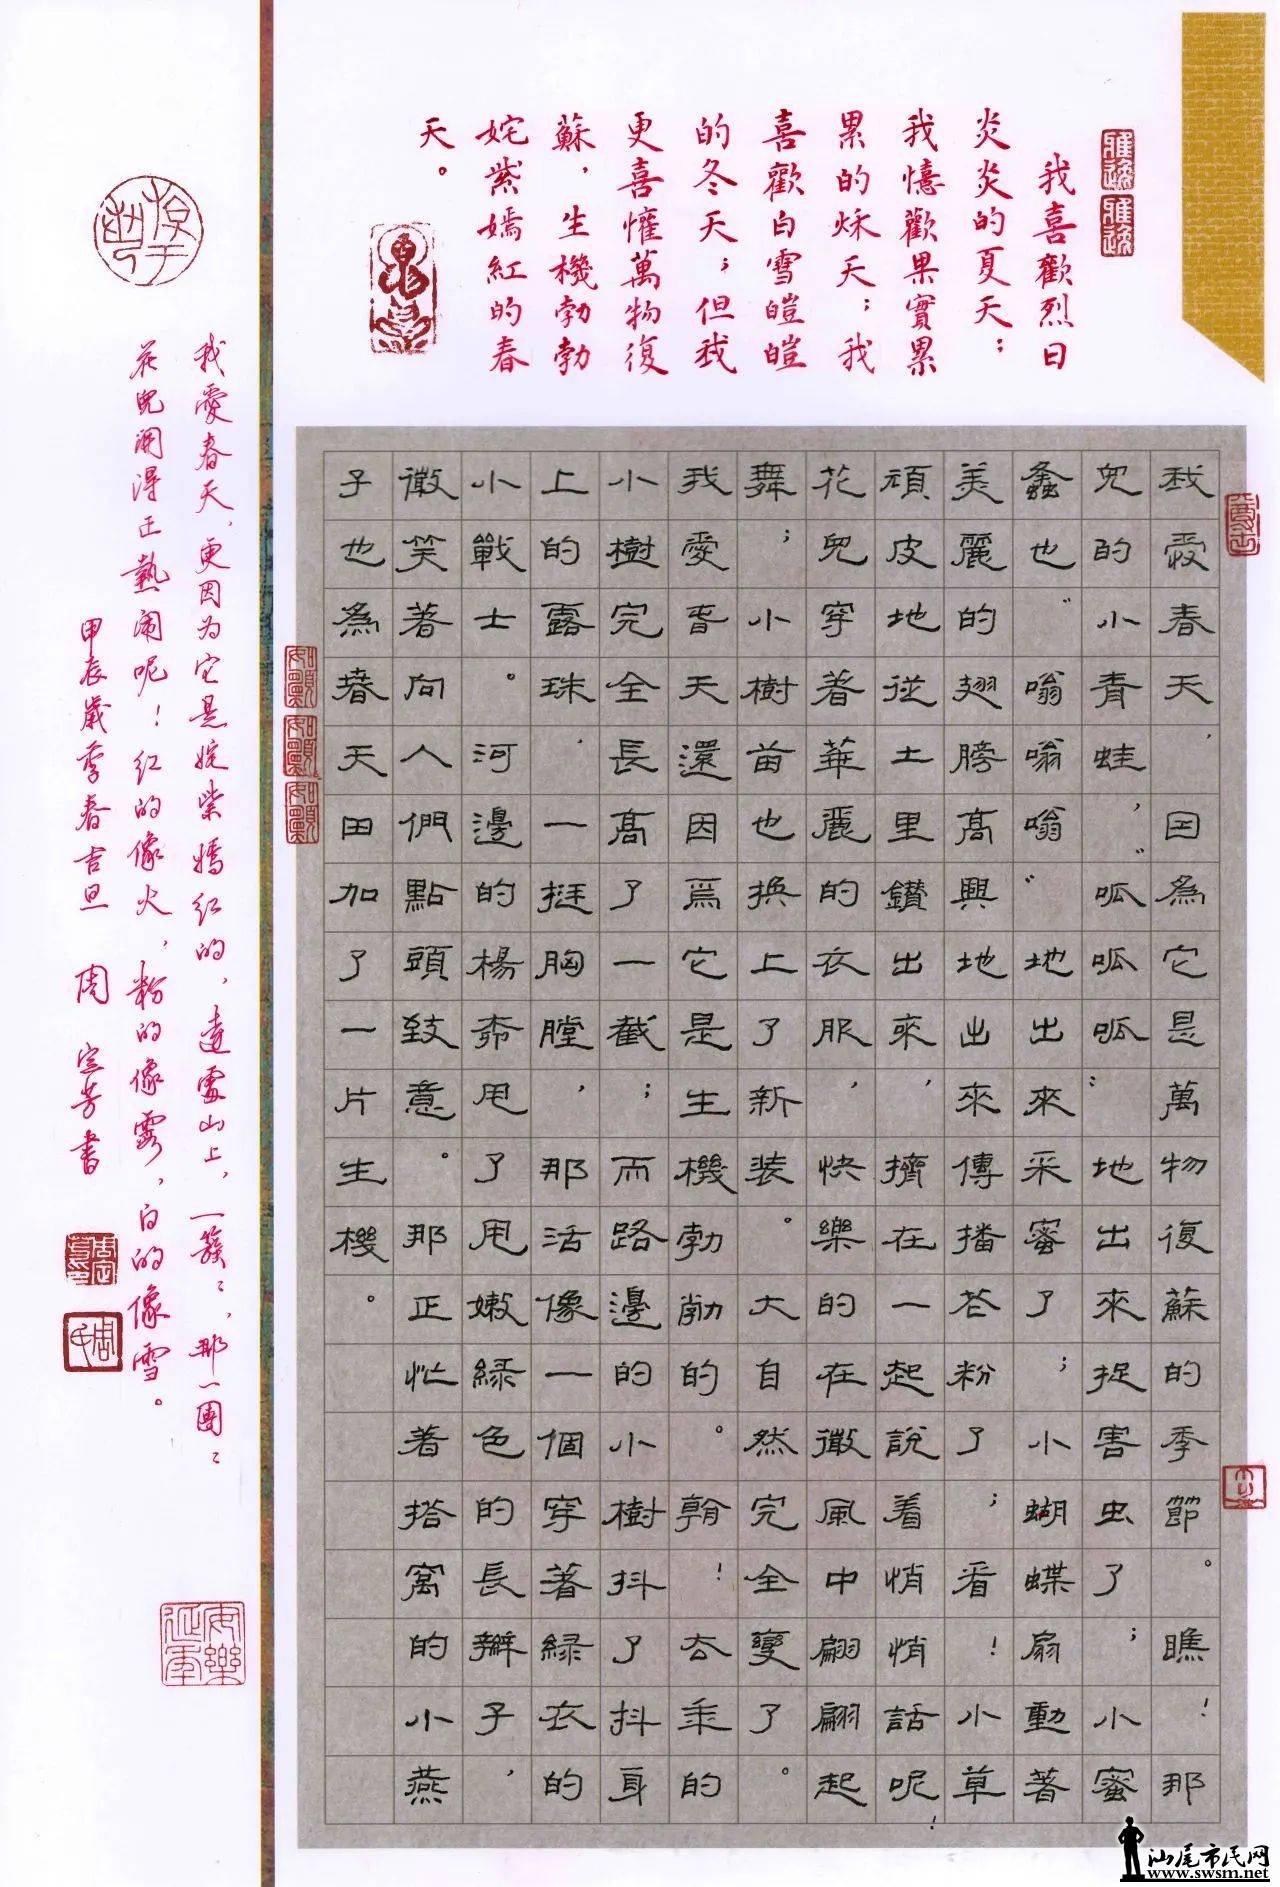 我喜歡烈日
炎炎的夏天；
我憶歡果實累
累的秌天；我
喜歡白雪皚皚
的冬天；但我
更喜懽萬物復
蘇，生機勃勃
姹紫嫣紅的春
天。
我愛春天，因為它是萬物復蘇的季節。瞧！那
兒的小青蛙，“呱呱呱”地出來捉害蟲了；小蜜
蠭也“嗡嗡嗡”地出來采蜜了；小蝴蝶扇動著
美麗的翅膀高興地出來傳播花粉了；看！小草
頑皮地從土里鑽出來，擠在一起說着悄悄話呢！
花兒穿着華麗的衣服，快樂的在微風中翩翩起
舞；小樹苗也換上了新装。大自然完全變了。
我愛春天還因爲它是生機勃勃的。翰！公乘的
小樹完全長高了一截；而路邊的小樹抖了抖身
上的露珠，一挺胸膛，那活像一個穿著綠衣的
小戰士。河邊的楊柰甩了甩嫩綠色的長辮子，
微笑著向人們點頭致意。那正忙着搭窩的小燕
子也為春天田加了一片生機。
我愛春天，更因为它是姹紫嫣红的，遠處山上，一簇〻，那一團〻
花兒開得正熱闹呢！红的像火，粉的像霞，白的像雪。
甲辰歲季春吉旦 周定芳書
安樂延年
汕尾市民网
www.swsm.net